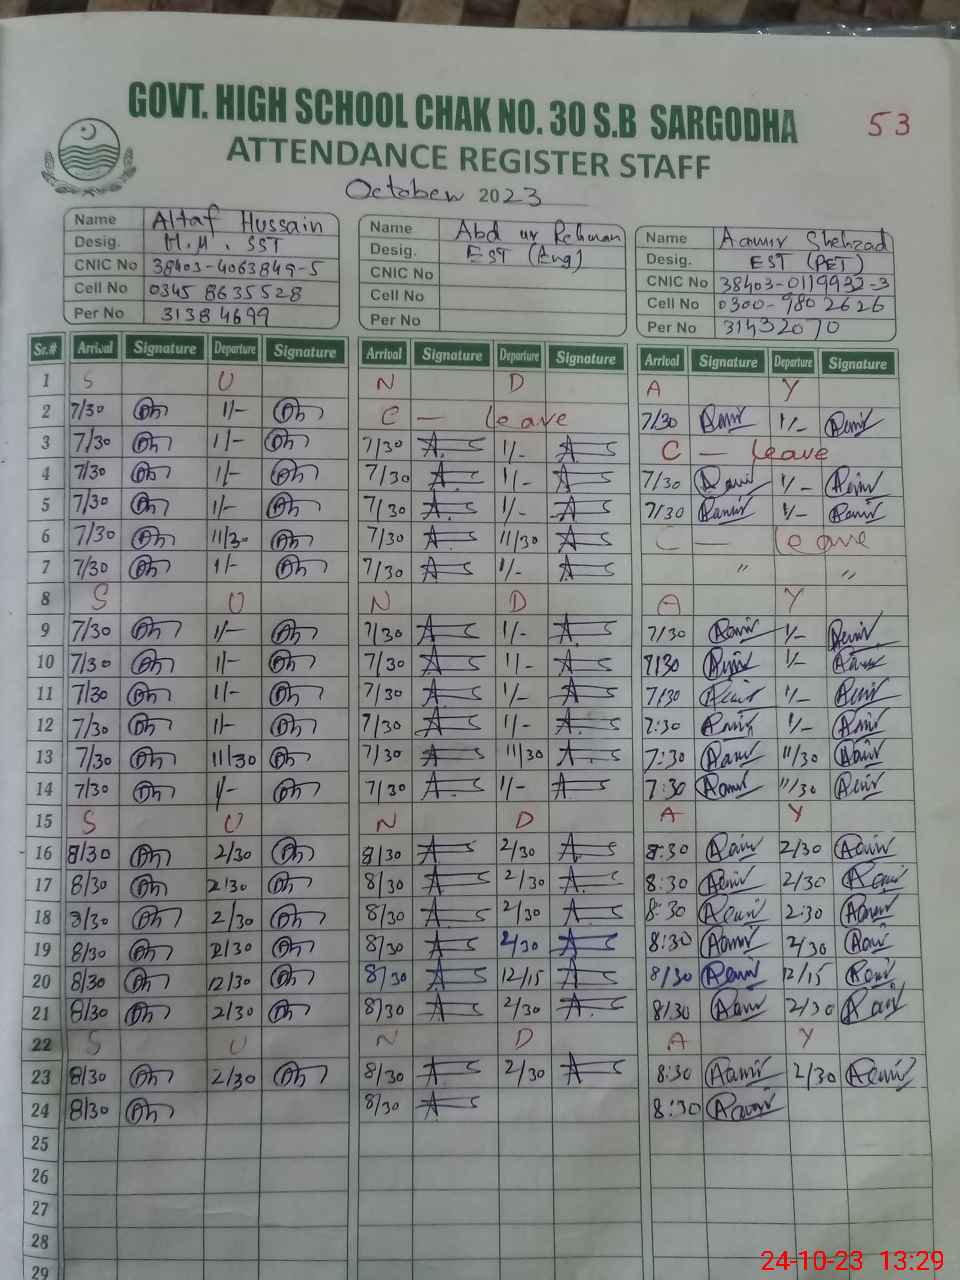 GOVT. HIGH SCHOOL CHAK NO. 30 S.B SARGODHA
53
ATTENDANCE REGISTER STAFF
October 2023
Name Altaf Hussain
Desig. H.M. SST
CNIC No 38403-4063849-5
Cell No 0345 8635528
Per No 31384699
Name Abd ur Rehman
Desig. EST (Eng)
CNIC No
Cell No
Per No
Name Aamir Shehzad
Desig. EST (PET)
CNIC No 38403-0119932-3
Cell No 0300-9802626
Per No 31432070
Sr.# Arrival Signature Departure Signature Arrival Signature Departure Signature Arrival Signature Departure Signature
1 S U N D A Y
2 7/30 1/- C — leave 7/30 Aamir 1/- Aamir
3 7/30 1/- 7/30 1/- C — leave
4 7/30 1/- 7/30 1/- 7/30 Aamir 1/- Aamir
5 7/30 1/- 7/30 1/- 7/30 Aamir 1/- Aamir
6 7/30 11/30 7/30 11/30 C — leave
7 7/30 1/- 7/30 1/- " "
8 S U N D A Y
9 7/30 1/- 7/30 1/- 7/30 Aamir 1/- Aamir
10 7/30 1/- 7/30 1/- 7/30 Aamir 1/- Aamir
11 7/30 1/- 7/30 1/- 7/30 Aamir 1/- Aamir
12 7/30 1/- 7/30 1/- 7:30 Aamir 1/- Aamir
13 7/30 11/30 7/30 11/30 7:30 Aamir 11/30 Aamir
14 7/30 1/- 7/30 1/- 7:30 Aamir 11/30 Aamir
15 S U N D A Y
16 8/30 2/30 8/30 2/30 8:30 Aamir 2/30 Aamir
17 8/30 2/30 8/30 2/30 8:30 Aamir 2/30 Aamir
18 8/30 2/30 8/30 2/30 8:30 Aamir 2:30 Aamir
19 8/30 2/30 8/30 2/30 8:30 Aamir 2/30 Aamir
20 8/30 12/30 8/30 12/15 8/30 Aamir 12/15 Aamir
21 8/30 2/30 8/30 2/30 8/30 Aamir 2/30 Aamir
22 S U N D A Y
23 8/30 2/30 8/30 2/30 8:30 Aamir 2/30 Aamir
24 8/30 8/30 8:30 Aamir
25
26
27
28
29
24-10-23 13:29